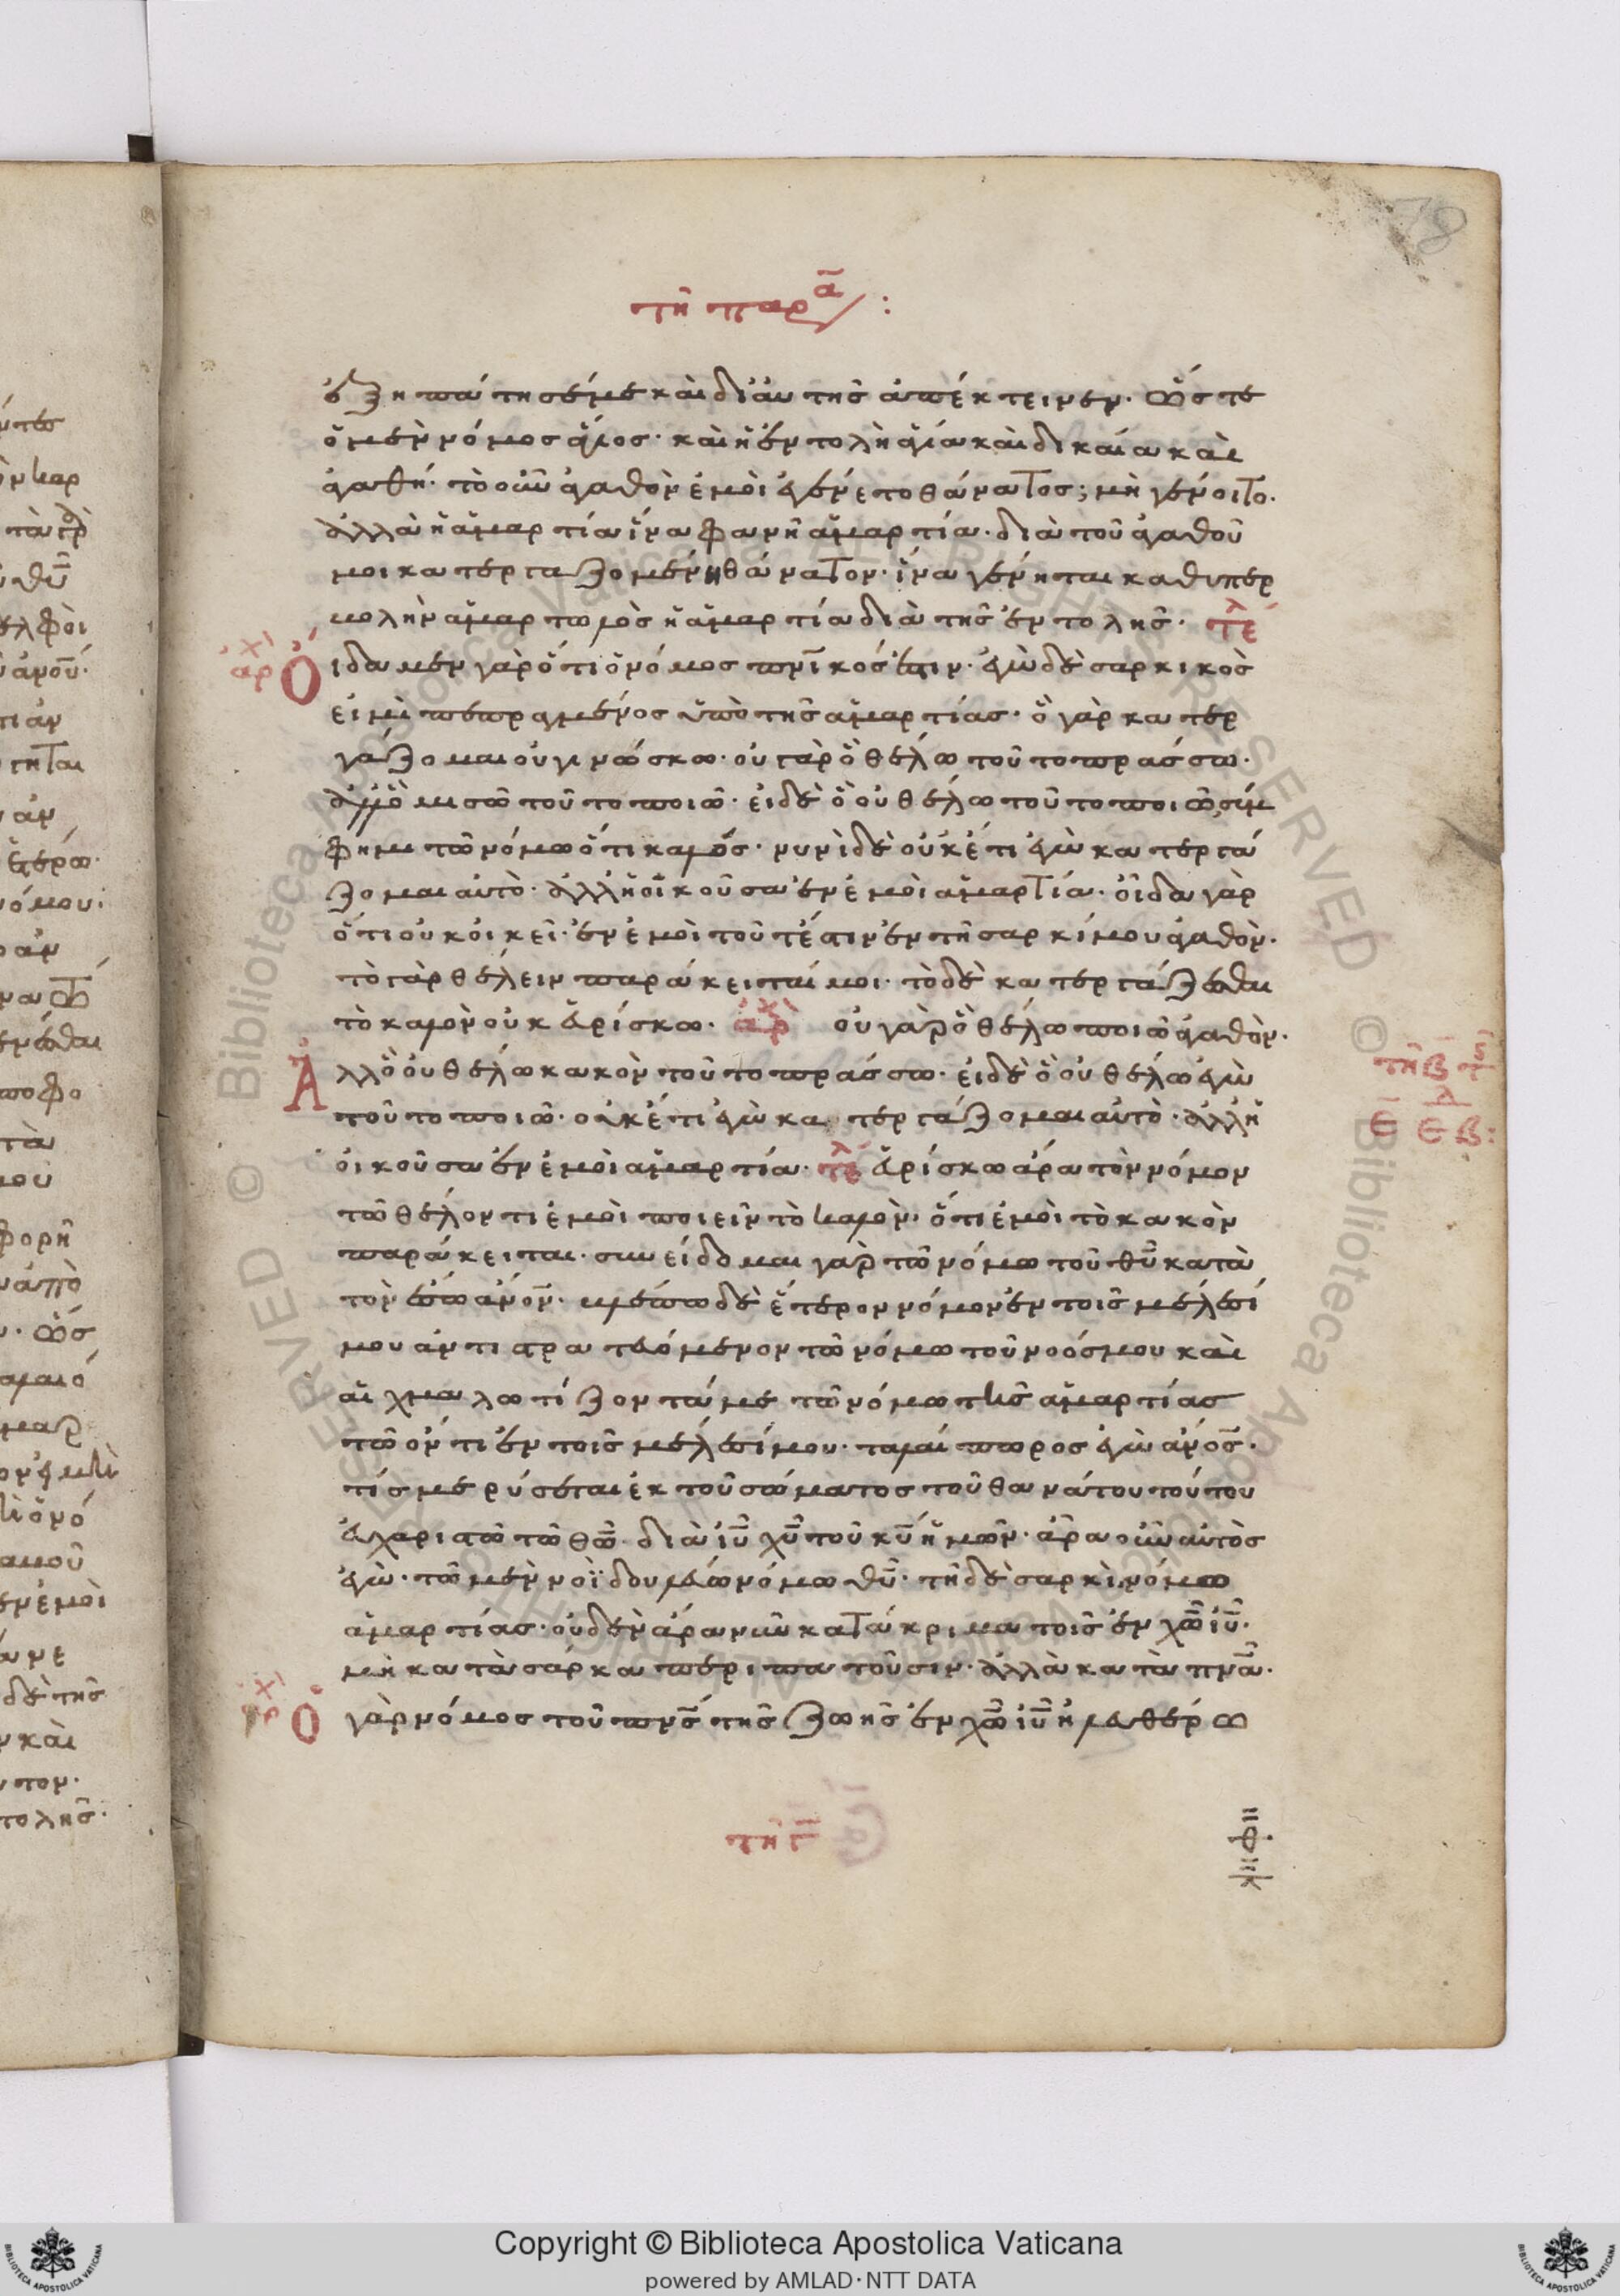 78
τῆ παρα :
ἐξηπάτησέ με καὶ δι' ἀυτῆς ἀπέκτεινεν. ὥστε
ὁ μὲν νόμος ἅγιος. καὶ ἡ ἐντολὴ ἁγία καὶ δικαία καὶ
ἀγαθή. τὸ οὖν ἀγαθὸν ἐμοὶ γέγενετο θάνατος; μὴ γένοιτο.
ἀλλὰ ἡ ἁμαρτία ἵνα φανῆ ἁμαρτία. διὰ τοῦ ἀγαθοῦ
μοι κατεργαζομένη θάνατον. ἵνα γένηται καθ' ὑπερ
βολὴν ἁμαρτωλὸς ἡ ἁμαρτία διὰ τῆς ἐντολῆς. τε
ἀρχ Ὀ ιδα μὲν γὰρ ὅτι ὁ νόμος πνικός ἐστιν. ἐγὼ δὲ σαρκικὸς
εἰμὶ πεπραμένος ὑπὸ τῆς ἁμαρτίας. ὃ γὰρ κατερ
γάζομαι οὐ γινώσκω. οὐ γὰρ ὃ θέλω τοῦτο πράσσω.
ἀλλ' ὃ μισῶ τοῦτο ποιῶ. εἰ δὲ ὃ οὐ θέλω τοῦτο ποιῶ, σύμ
φημι τῶ νόμω ὅτι καλός. νυνὶ δὲ οὐκέτι ἐγὼ κατεργά
ζομαι αὐτὸ. ἀλλ' ἡ οἰκοῦσα ἐν ἐμοὶ ἁμαρτία. οἶδα γὰρ
ὅτι οὐκ οἰκεῖ. ἐν ἐμοὶ τοῦτέστιν ἐν τῆ σαρκί μου ἀγαθὸν.
τὸ γὰρ θέλειν παράκειταί μοι. τὸ δὲ κατεργάζεσθαι
τὸ καλὸν οὐκ εὑρίσκω. ἀρχ οὐ γὰρ ὃ θέλω ποιῶ ἀγαθὸν.
Ἀ λλ' ὃ οὐ θέλω κακὸν τοῦτο πράσσω. εἰ δὲ ὃ οὐ θέλω ἐγὼ
τοῦτο ποιῶ. οὐκέτι ἐγὼ κατεργάζομαι αὐτὸ. ἀλλ' ἡ
οἰκοῦσα ἐν ἐμοὶ ἁμαρτία. τε εὑρίσκω ἄρα τὸν νόμον
τῶ θέλοντι ἐμοὶ ποιεῖν τὸ καλὸν. ὅτι ἐμοὶ τὸ κακὸν
παράκειται. συνείδομαι γὰρ τῶ νόμω τοῦ θυ κατὰ
τὸν ἔσω ἄνον. βλέπω δὲ ἕτερον νόμον ἐν τοῖς μέλεσί
μου ἀντιστρατευόμενον τῶ νόμω τοῦ νοός μου καὶ
αἰχμαλωτίζοντά με τῶ νόμω τῆς ἁμαρτίας
τῶ ὄντι ἐν τοῖς μέλεσί μου. ταλαίπωρος ἐγὼ ἄνος.
τίς με ρύσεται ἐκ τοῦ σώματος τοῦ θανάτου τούτου
εὐχαριστῶ τῶ θω. διὰ ιυ χυ τοῦ κυ ἡμῶν. ἄρα οὖν αὐτὸς
ἐγὼ. τῶ μὲν νοῒ δουλεύω νόμω θυ. τῆ δὲ σαρκὶ νόμω
ἁμαρτίας. οὐδὲν ἄρα νῦν κατάκριμα τοῖς ἐν χω ιυ.
μὴ κατὰ σάρκα περιπατοῦσιν. ἀλλὰ κατὰ πνα.
ἀρχ Ὁ γὰρ νόμος τοῦ πνς τῆς ζωῆς ἐν χω ιυ ἠλευθέρω
τῆ γ
Copyright © Biblioteca Apostolica Vaticana
powered by AMLAD·NTT DATA